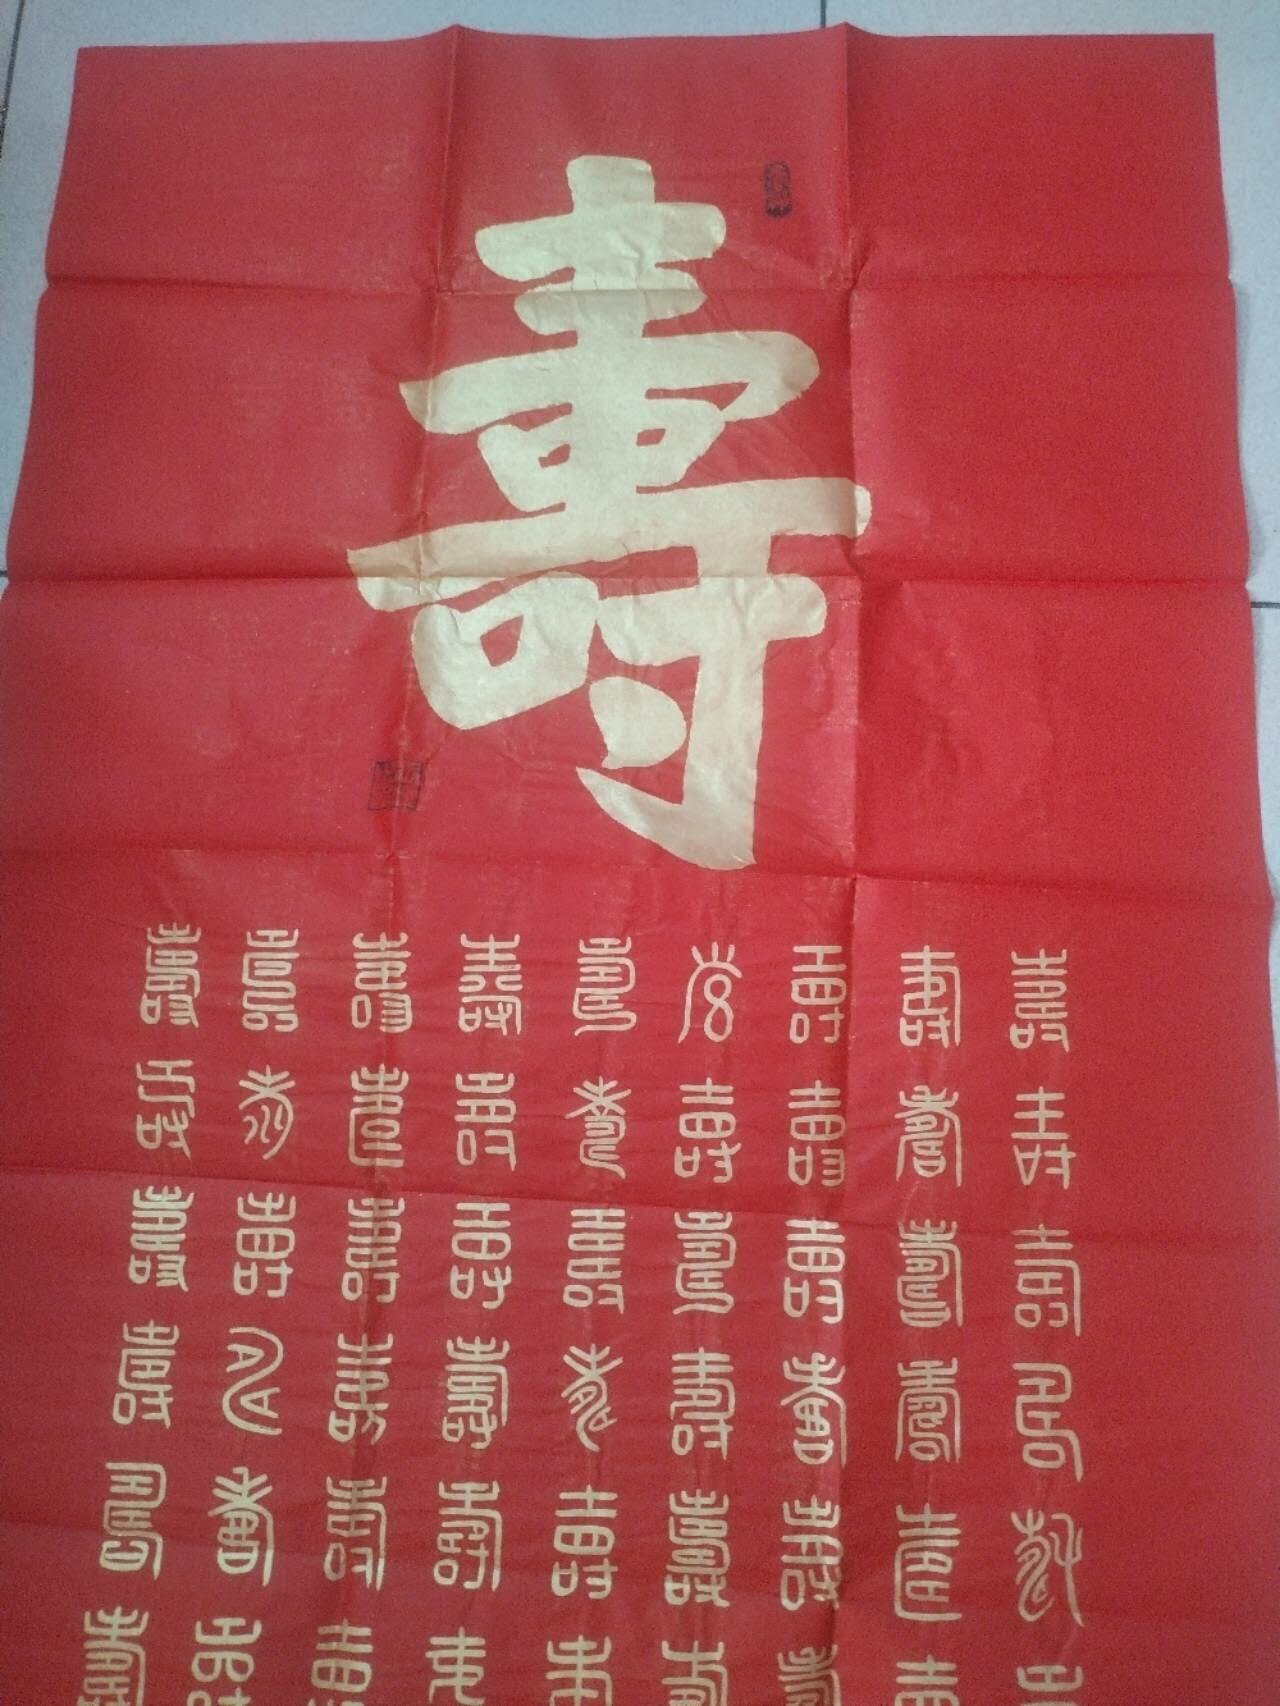 壽
壽壽壽壽壽
壽壽壽壽壽
壽壽壽壽壽
壽壽壽壽壽
壽壽壽壽壽
壽壽壽壽壽
壽壽壽壽壽
壽壽壽壽壽
壽壽壽壽壽